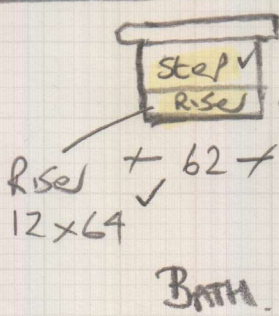 Step ✓
Riser
+ 62 +
Riser
12x64 ✓
BATH.